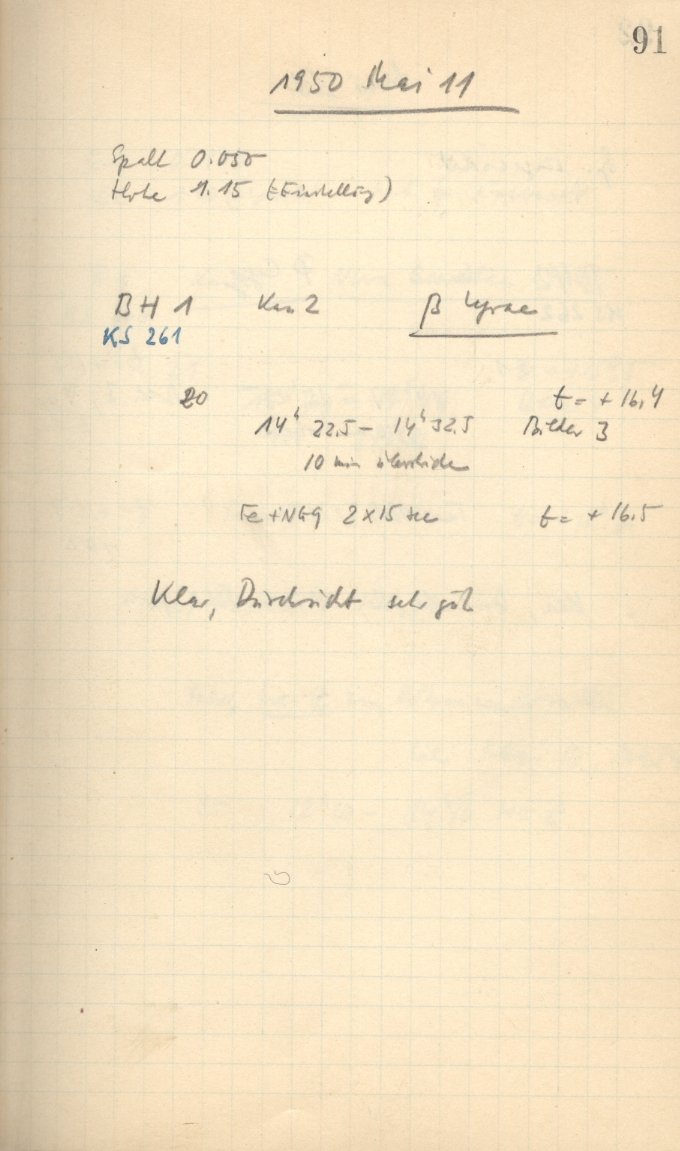 91
1950 Mai 11
Spalt 0.050
Höhe 1.15 (Einstellung)
BH 1 Kam 2 β Lyrae
KS 261
20 t = + 16,4
14ʰ 22.5 – 14ʰ 32.5 Bilder 3
10 min
Fe + 2 x 15 sec t = + 16.5
Klar, Durchsicht sehr gut